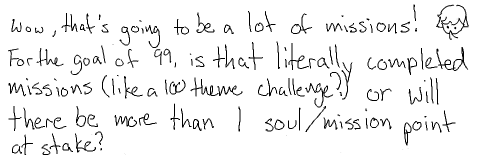 Wow, that's going to be a lot of missions!
For the goal of 99, is that literally completed
missions (like a 100 theme challenge?) or will
there be more than 1 soul/mission point
at stake?